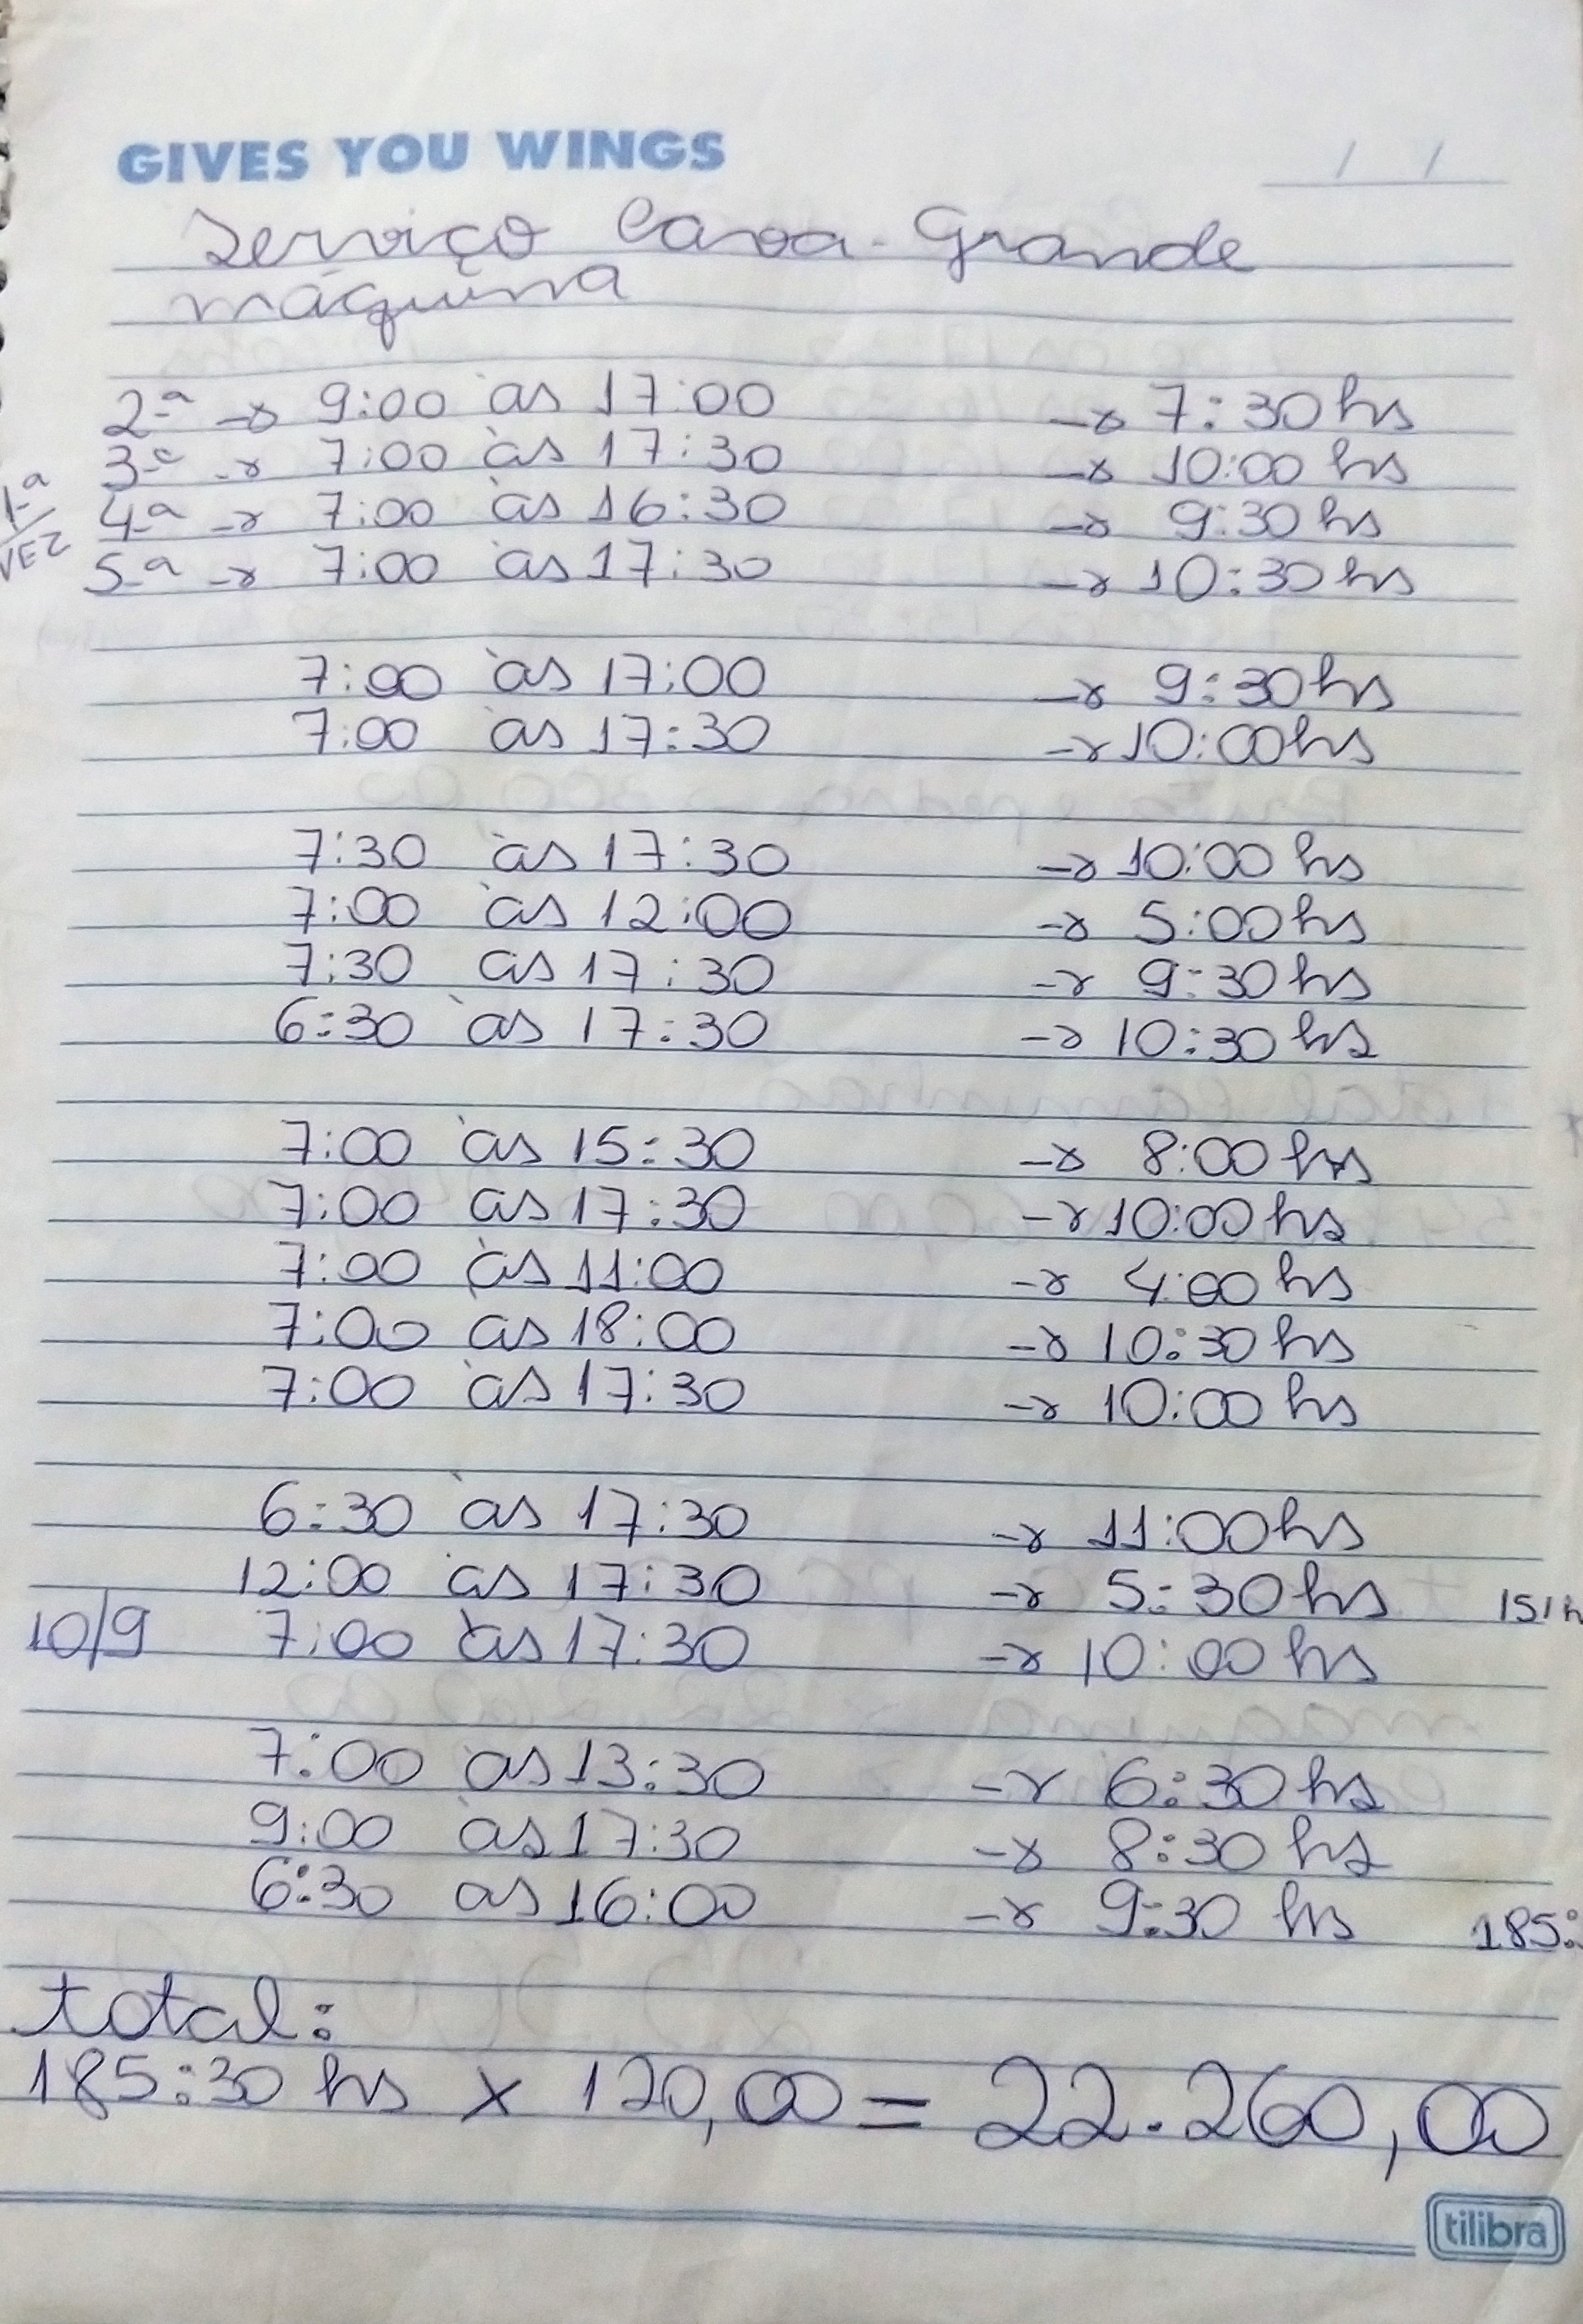 GIVES YOU WINGS
/ /
Serviço Cava-Grande
máquina
2ª → 9:00 às 17:00 → 7:30 hs
3ª → 7:00 às 17:30 → 10:00 hs
1ª VEZ
4ª → 7:00 às 16:30 → 9:30 hs
5ª → 7:00 às 17:30 → 10:30 hs
7:00 às 17:00 → 9:30 hs
7:00 às 17:30 → 10:00 hs
7:30 às 17:30 → 10:00 hs
7:00 às 12:00 → 5:00 hs
7:30 às 17:30 → 9:30 hs
6:30 às 17:30 → 10:30 hs
7:00 às 15:30 → 8:00 hs
7:00 às 17:30 → 10:00 hs
7:00 às 11:00 → 4:00 hs
7:00 às 18:00 → 10:30 hs
7:00 às 17:30 → 10:00 hs
6:30 às 17:30 → 11:00 hs
12:00 às 17:30 → 5:30 hs 151h
10/9 7:00 às 17:30 → 10:00 hs
7:00 às 13:30 → 6:30 hs
9:00 às 17:30 → 8:30 hs
6:30 às 16:00 → 9:30 hs 185:
total:
185:30 hs x 120,00 = 22.260,00
tilibra